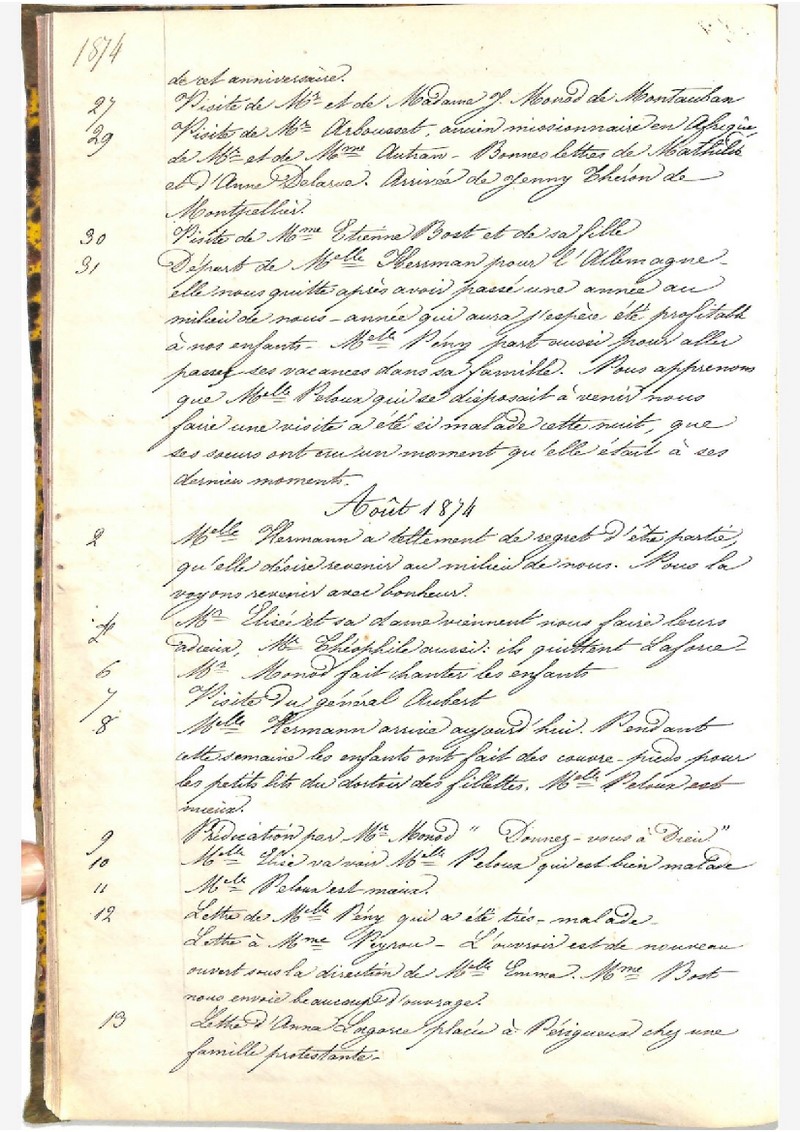 1874
de cet anniversaire.
27 Visite de Mr et de Madame J. Monod de Montauban
29 Visite de Mr Arbousset, ancien missionnaire en Afrique,
de Mr et de Mme Autran - Bonnes lettres de Mathilde
et d'Anne Delarue. Arrivée de Jenny Théron de
Montpellier.
30 Visite de Mme Etienne Bost et de sa fille
31 Départ de Melle Herrman pour l'Allemagne -
elle nous quitte après avoir passé une année au
milieu de nous - année qui aura j'espère été profitable
à nos enfants - Melle Pény part aussi pour aller
passer ses vacances dans sa famille. Nous apprenons
que Melle Peloux qui se disposait à venir nous
faire une visite a été si malade cette nuit, que
ses sœurs ont cru un moment qu'elle était à ses
derniers moments.
Août 1874
2 Melle Hermann a tellement de regret d'être partie,
qu'elle désire revenir au milieu de nous. Nous la
voyons revenir avec bonheur.
4 Mr Elisée et sa dame viennent nous faire leurs
adieux, Mr Théophile aussi : ils quittent Laforce -
6 Mr Monod fait chanter les enfants
7 Visite du général Aubert
8 Melle Hermann arrive aujourd'hui. Pendant
cette semaine les enfants ont fait des couvre-pieds pour
les petits lits du dortoir des fillettes. Melle Peloux est
mieux.
9 Prédication par Mr Monod " Donnez-vous à Dieu "
10 Melle Elise va voir Melle Peloux qui est bien malade
11 Melle Peloux est mieux.
12 Lettre de Melle Pény qui a été très-malade -
Lettre à Mme Peyrou - L'ouvroir est de nouveau
ouvert sous la direction de Melle Emma. Mme Bost
nous envoie beaucoup d'ouvrage.
13 Lettre d'Anna Lagorce placée à Périgueux chez une
famille protestante -